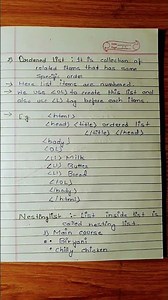 2) Ordered list :- It is collection of
related items that has some
specific order
→ Here list items are numbered.
→ We use <OL> to create this list and
also use <L> tag before each items.
→ E.g <html>
<head> <title> ordered list
</title> </head>
<body>
<OL>
<L> Milk
<L>
<L> Bread
</OL>
</body>
</html>
Nesting list :- List inside list is
called nesting list.
1) Main course
• Biryani
• Chilly chicken